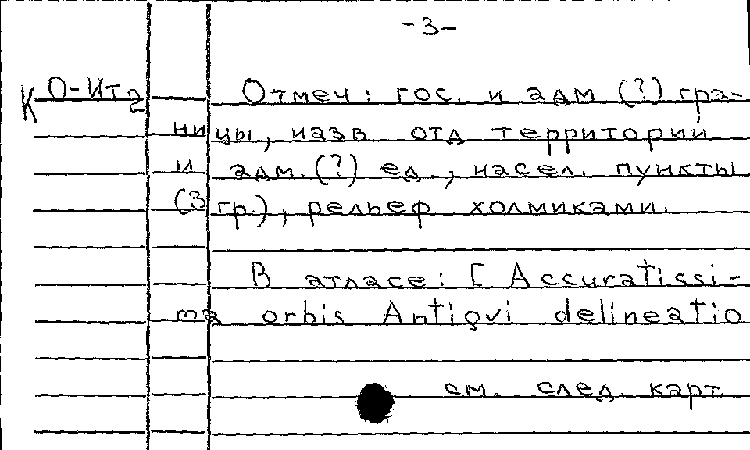 -3-
К О-Ит2 Отмеч: гос. и адм (?) гра-
ницы, назв отд территорий
и адм. (?) ед., насел. пункты
(3 гр.), рельеф холмиками.
В атласе: [ Accuratissi-
ma orbis Antiqvi delineatio
см. след. карт